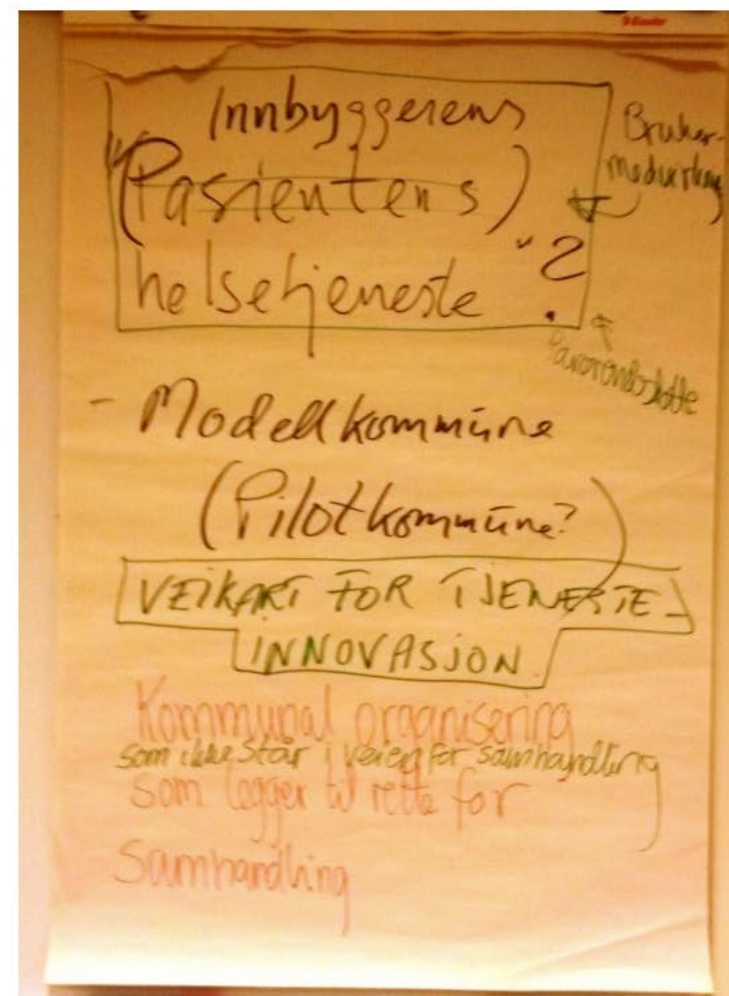 Innbyggerens
"(Pasientens)
helsetjeneste"?
Bruker-
medvirkning
- Modellkommune
(Pilotkommune?)
VEIKART FOR TJENESTE-
INNOVASJON
Kommunal organisering
som ikke står i veien for samhandling
som legger til rette for
samhandling